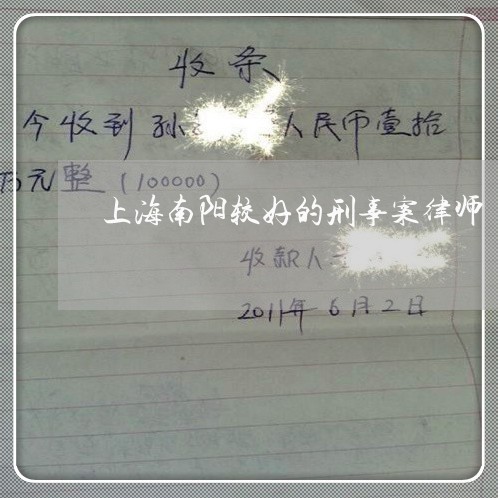 收条
今收到孙 人民币壹拾
万元整（100000）
上海南阳较好的刑事案律师
收款人
2011年6月2日